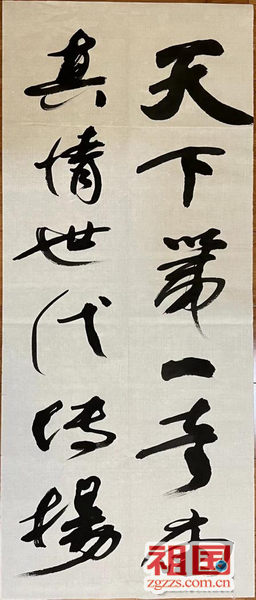 天下第一
真情世代傳揚
祖国
zgzzs.com.cn